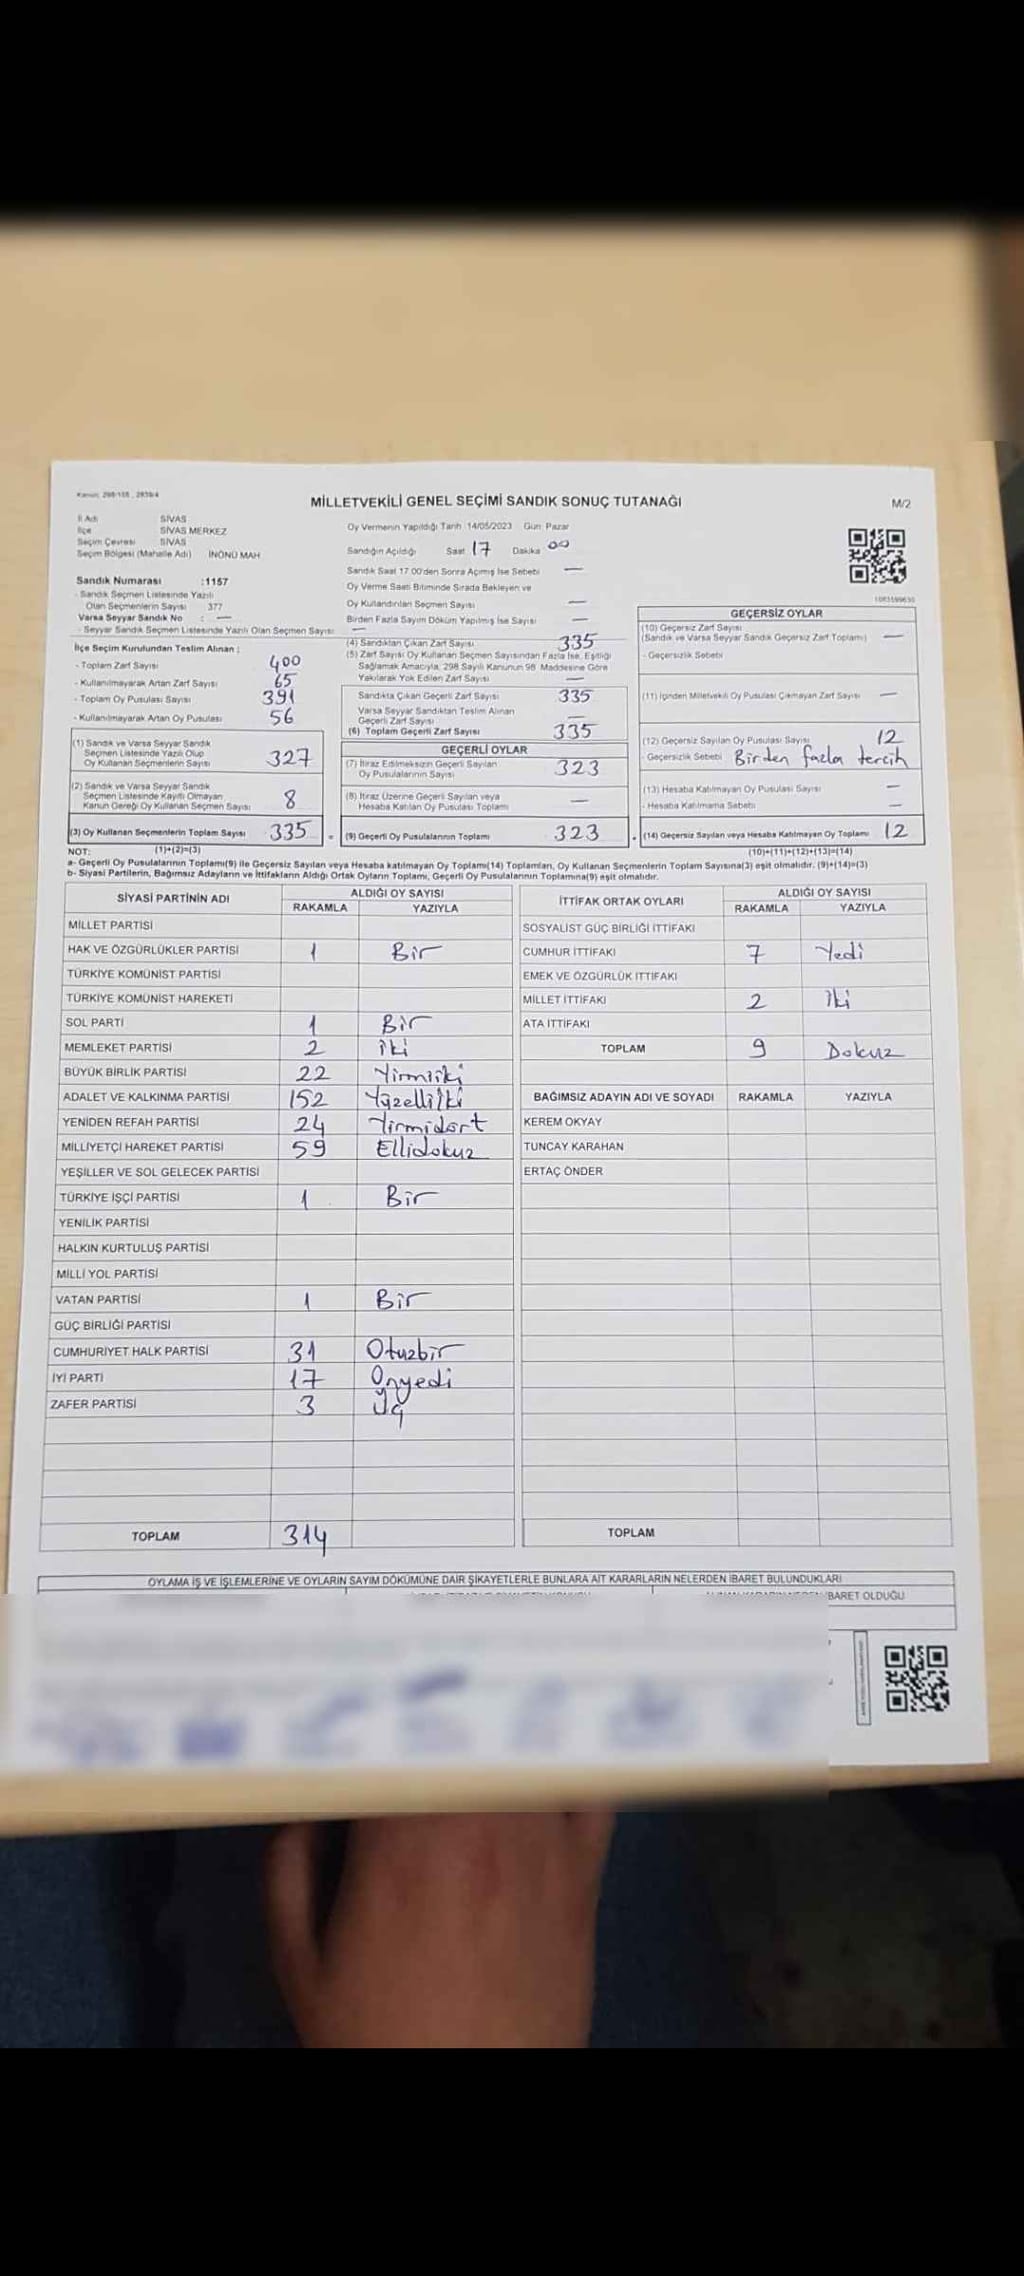 Kanun: 298/105 , 2839/4
MİLLETVEKİLİ GENEL SEÇİMİ SANDIK SONUÇ TUTANAĞI
M/2
İl Adı SİVAS
İlçe SİVAS MERKEZ
Seçim Çevresi SİVAS
Seçim Bölgesi (Mahalle Adı) İNÖNÜ MAH
Sandık Numarası :1157
- Sandık Seçmen Listesinde Yazılı
Olan Seçmenlerin Sayısı 377
Varsa Seyyar Sandık No : —
- Seyyar Sandık Seçmen Listesinde Yazılı Olan Seçmen Sayısı —
İlçe Seçim Kurulundan Teslim Alınan ;
- Toplam Zarf Sayısı 400
- Kullanılmayarak Artan Zarf Sayısı 65
- Toplam Oy Pusulası Sayısı 391
- Kullanılmayarak Artan Oy Pusulası 56
(1) Sandık ve Varsa Seyyar Sandık
Seçmen Listesinde Yazılı Olup
Oy Kullanan Seçmenlerin Sayısı 327
(2) Sandık ve Varsa Seyyar Sandık
Seçmen Listesinde Kayıtlı Olmayan
Kanun Gereği Oy Kullanan Seçmen Sayısı 8
(3) Oy Kullanan Seçmenlerin Toplam Sayısı 335
Oy Vermenin Yapıldığı Tarih 14/05/2023 Gün: Pazar
Sandığın Açıldığı Saat 17 Dakika 00
Sandık Saat 17.00'den Sonra Açılmış İse Sebebi —
Oy Verme Saati Bitiminde Sırada Bekleyen ve
Oy Kullandırılan Seçmen Sayısı —
Birden Fazla Sayım Döküm Yapılmış İse Sayısı —
(4) Sandıktan Çıkan Zarf Sayısı 335
(5) Zarf Sayısı Oy Kullanan Seçmen Sayısından Fazla İse, Eşitliği
Sağlamak Amacıyla, 298 Sayılı Kanunun 98. Maddesine Göre
Yakılarak Yok Edilen Zarf Sayısı —
Sandıkta Çıkan Geçerli Zarf Sayısı 335
Varsa Seyyar Sandıktan Teslim Alınan
Geçerli Zarf Sayısı —
(6) Toplam Geçerli Zarf Sayısı 335
GEÇERLİ OYLAR
(7) İtiraz Edilmeksizin Geçerli Sayılan
Oy Pusulalarının Sayısı 323
(8) İtiraz Üzerine Geçerli Sayılan veya
Hesaba Katılan Oy Pusulası Toplamı —
= (9) Geçerli Oy Pusulalarının Toplamı 323
1083599630
GEÇERSİZ OYLAR
(10) Geçersiz Zarf Sayısı
(Sandık ve Varsa Seyyar Sandık Geçersiz Zarf Toplamı) —
- Geçersizlik Sebebi
(11) İçinden Milletvekili Oy Pusulası Çıkmayan Zarf Sayısı —
(12) Geçersiz Sayılan Oy Pusulası Sayısı 12
- Geçersizlik Sebebi Birden fazla tercih
(13) Hesaba Katılmayan Oy Pusulası Sayısı —
- Hesaba Katılmama Sebebi —
+ (14) Geçersiz Sayılan veya Hesaba Katılmayan Oy Toplamı 12
NOT: (1)+(2)=(3) (10)+(11)+(12)+(13)=(14)
a- Geçerli Oy Pusulalarının Toplamı(9) ile Geçersiz Sayılan veya Hesaba katılmayan Oy Toplamı(14) Toplamları, Oy Kullanan Seçmenlerin Toplam Sayısına(3) eşit olmalıdır. (9)+(14)=(3)
b- Siyasi Partilerin, Bağımsız Adayların ve İttifakların Aldığı Ortak Oyların Toplamı, Geçerli Oy Pusulalarının Toplamına(9) eşit olmalıdır.
SİYASİ PARTİNİN ADI ALDIĞI OY SAYISI
RAKAMLA YAZIYLA
MİLLET PARTİSİ
HAK VE ÖZGÜRLÜKLER PARTİSİ 1 Bir
TÜRKİYE KOMÜNİST PARTİSİ
TÜRKİYE KOMÜNİST HAREKETİ
SOL PARTİ 1 Bir
MEMLEKET PARTİSİ 2 iki
BÜYÜK BİRLİK PARTİSİ 22 Yirmiiki
ADALET VE KALKINMA PARTİSİ 152 Yüzelliiki
YENİDEN REFAH PARTİSİ 24 Yirmidört
MİLLİYETÇİ HAREKET PARTİSİ 59 Ellidokuz
YEŞİLLER VE SOL GELECEK PARTİSİ
TÜRKİYE İŞÇİ PARTİSİ 1 Bir
YENİLİK PARTİSİ
HALKIN KURTULUŞ PARTİSİ
MİLLİ YOL PARTİSİ
VATAN PARTİSİ 1 Bir
GÜÇ BİRLİĞİ PARTİSİ
CUMHURİYET HALK PARTİSİ 31 Otuzbir
İYİ PARTİ 17 Onyedi
ZAFER PARTİSİ 3 Üç
TOPLAM 314
İTTİFAK ORTAK OYLARI ALDIĞI OY SAYISI
RAKAMLA YAZIYLA
SOSYALİST GÜÇ BİRLİĞİ İTTİFAKI
CUMHUR İTTİFAKI 7 Yedi
EMEK VE ÖZGÜRLÜK İTTİFAKI
MİLLET İTTİFAKI 2 iki
ATA İTTİFAKI
TOPLAM 9 Dokuz
BAĞIMSIZ ADAYIN ADI VE SOYADI RAKAMLA YAZIYLA
KEREM OKYAY
TUNCAY KARAHAN
ERTAÇ ÖNDER
TOPLAM
OYLAMA İŞ VE İŞLEMLERİNE VE OYLARIN SAYIM DÖKÜMÜNE DAİR ŞİKAYETLERLE BUNLARA AİT KARARLARIN NELERDEN İBARET BULUNDUKLARI
İBARET OLDUĞU